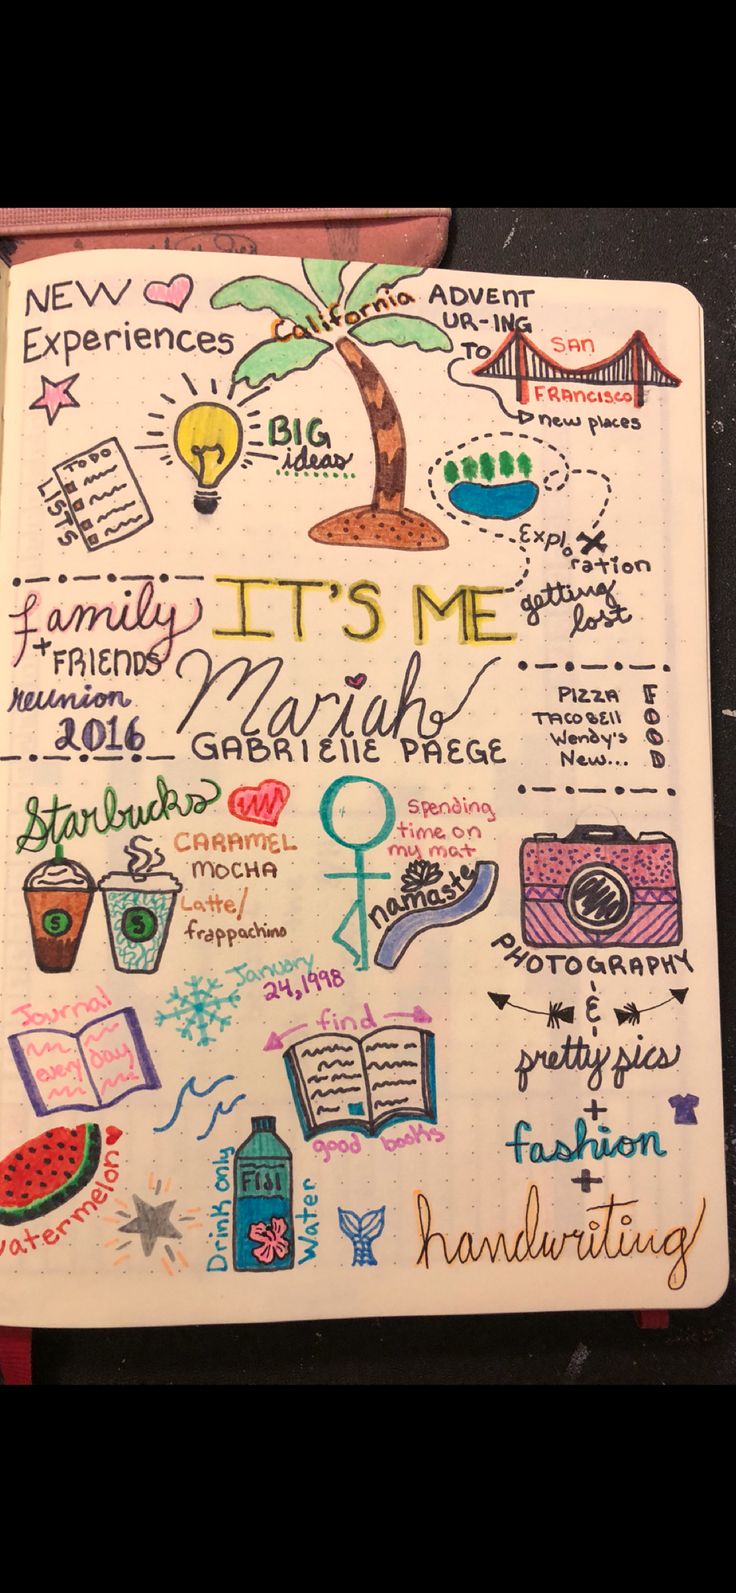 NEW
Experiences
California
ADVENT
UR-ING
TO
SAN
FRANCISCO
new places
BIG
ideas
TO DO
LISTS
Explo
ration
getting
lost
family
+ FRIENDS
reunion
2016
IT'S ME
Mariah
GABRIELLE PAEGE
PIZZA
TACO BELL
Wendy's
New...
FOOD
Starbucks
CARAMEL
MOCHA
Latte/
frappachino
S
S
spending
time on
my mat
namaste
January
24, 1998
PHOTOGRAPHY
&
pretty pics
+
fashion
+
handwriting
Journal
every day
find
good books
watermelon
Drink only
FIJI
Water